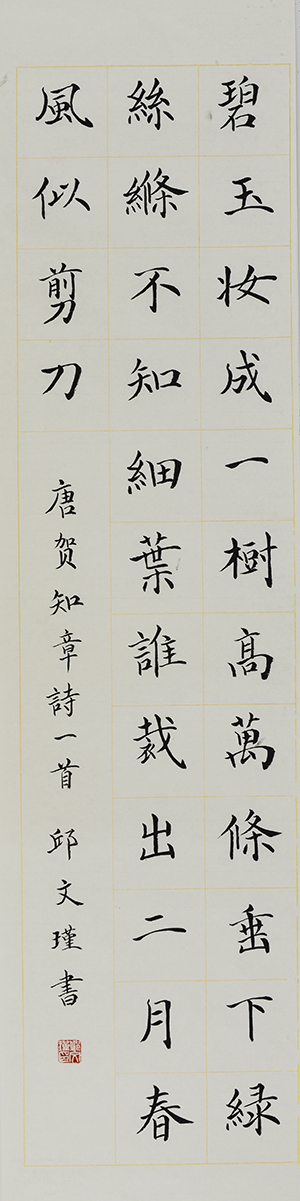 碧玉妆成一樹髙萬條垂下緑
絲縧不知細葉誰裁出二月春
風似剪刀
唐贺知章詩一首 邱文瑾書